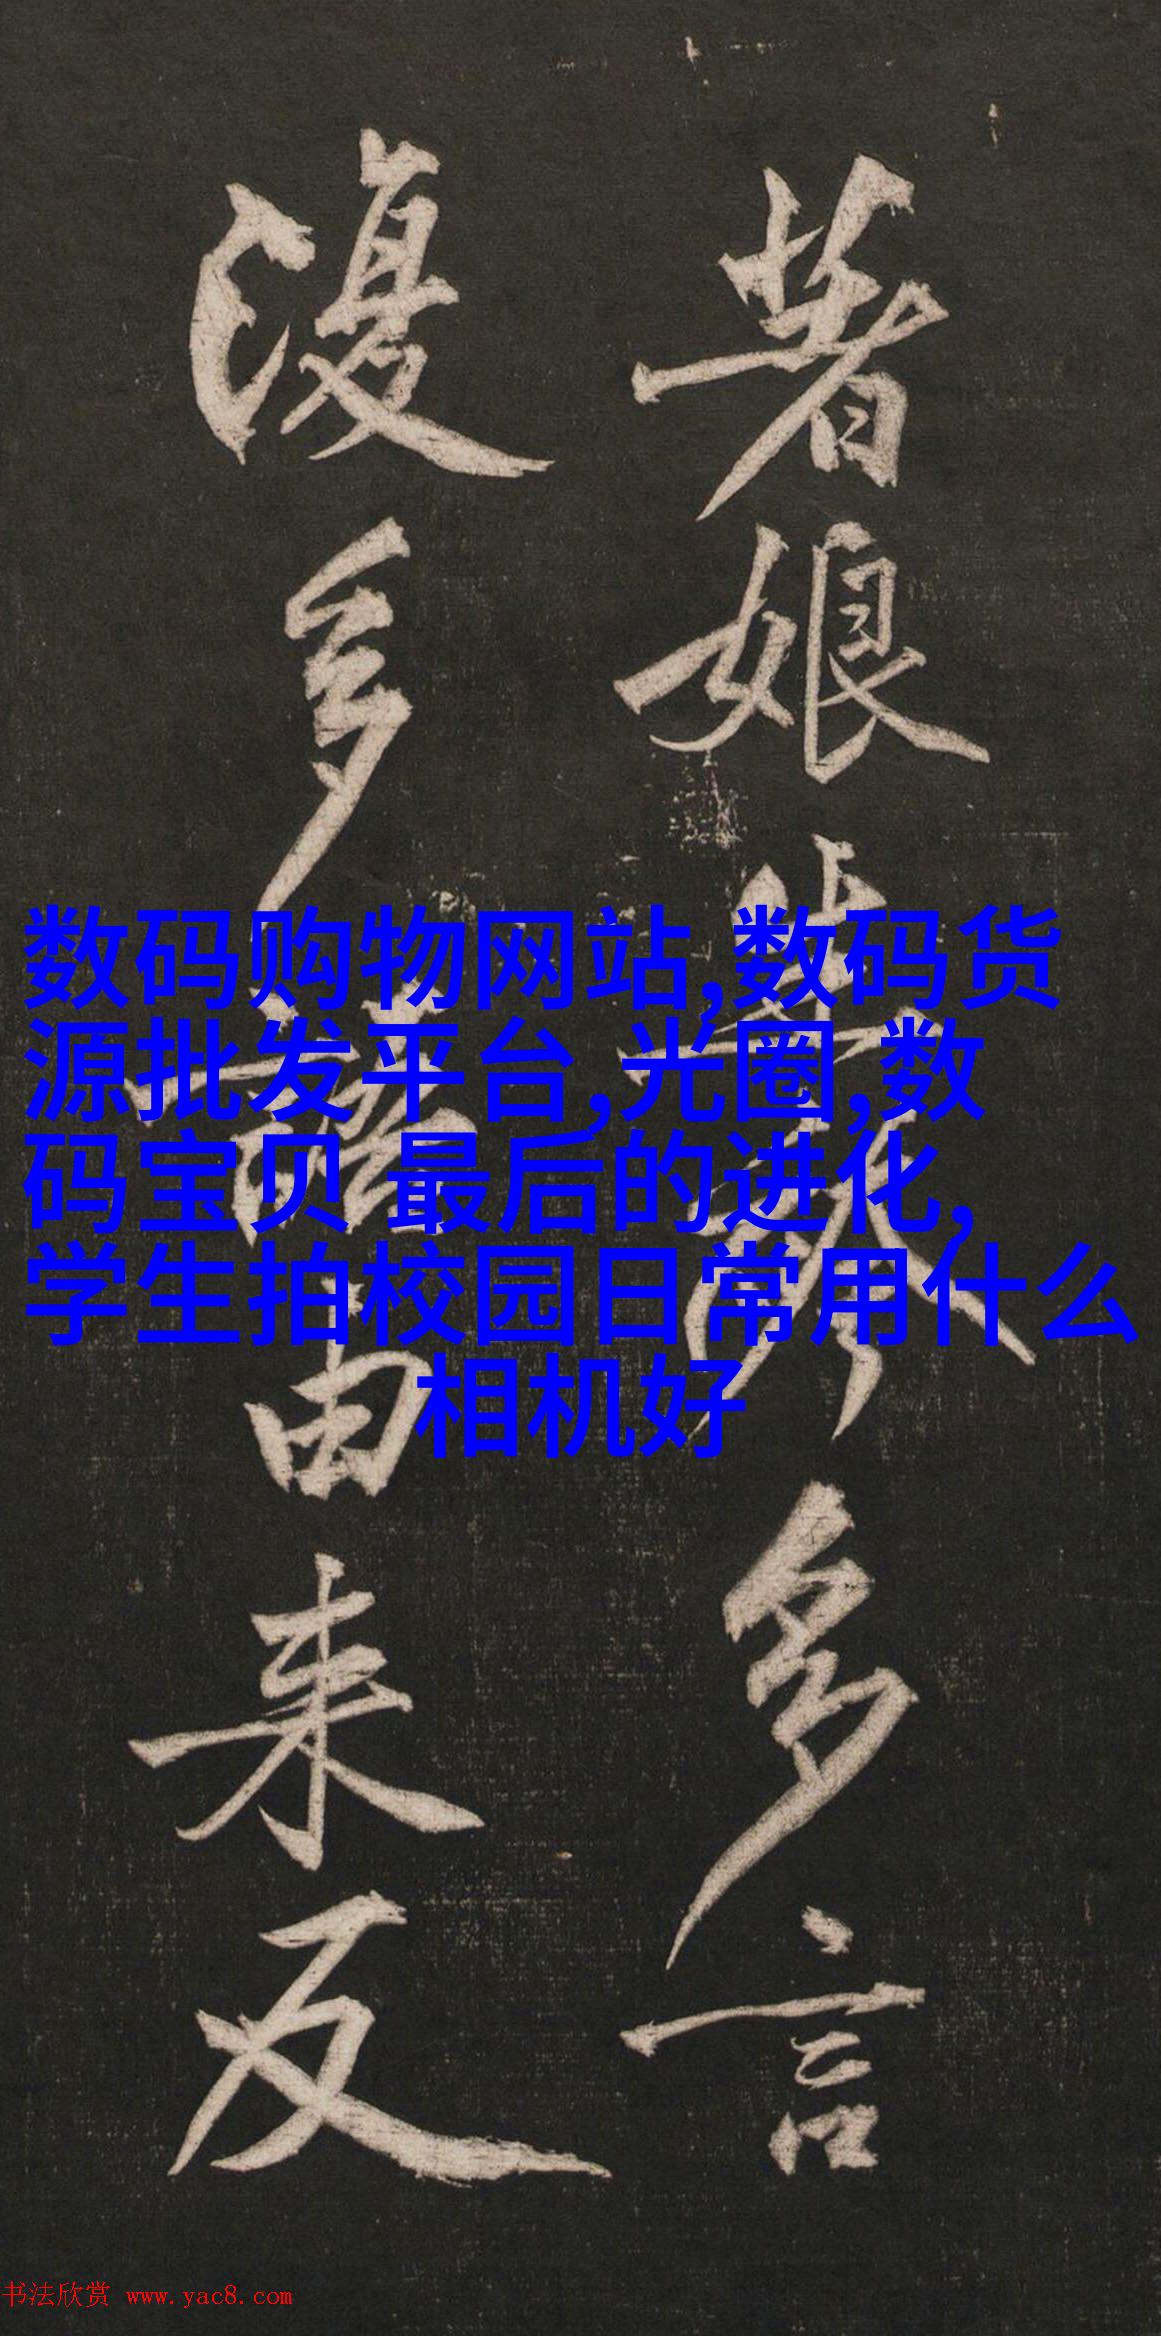 著娘琴多言
復多語由来反
数码购物网站,数码货
源批发平台,光圈,数
码宝贝 最后的进化,
学生拍校园日常用什么
相机好
书法欣赏 www.yac8.com